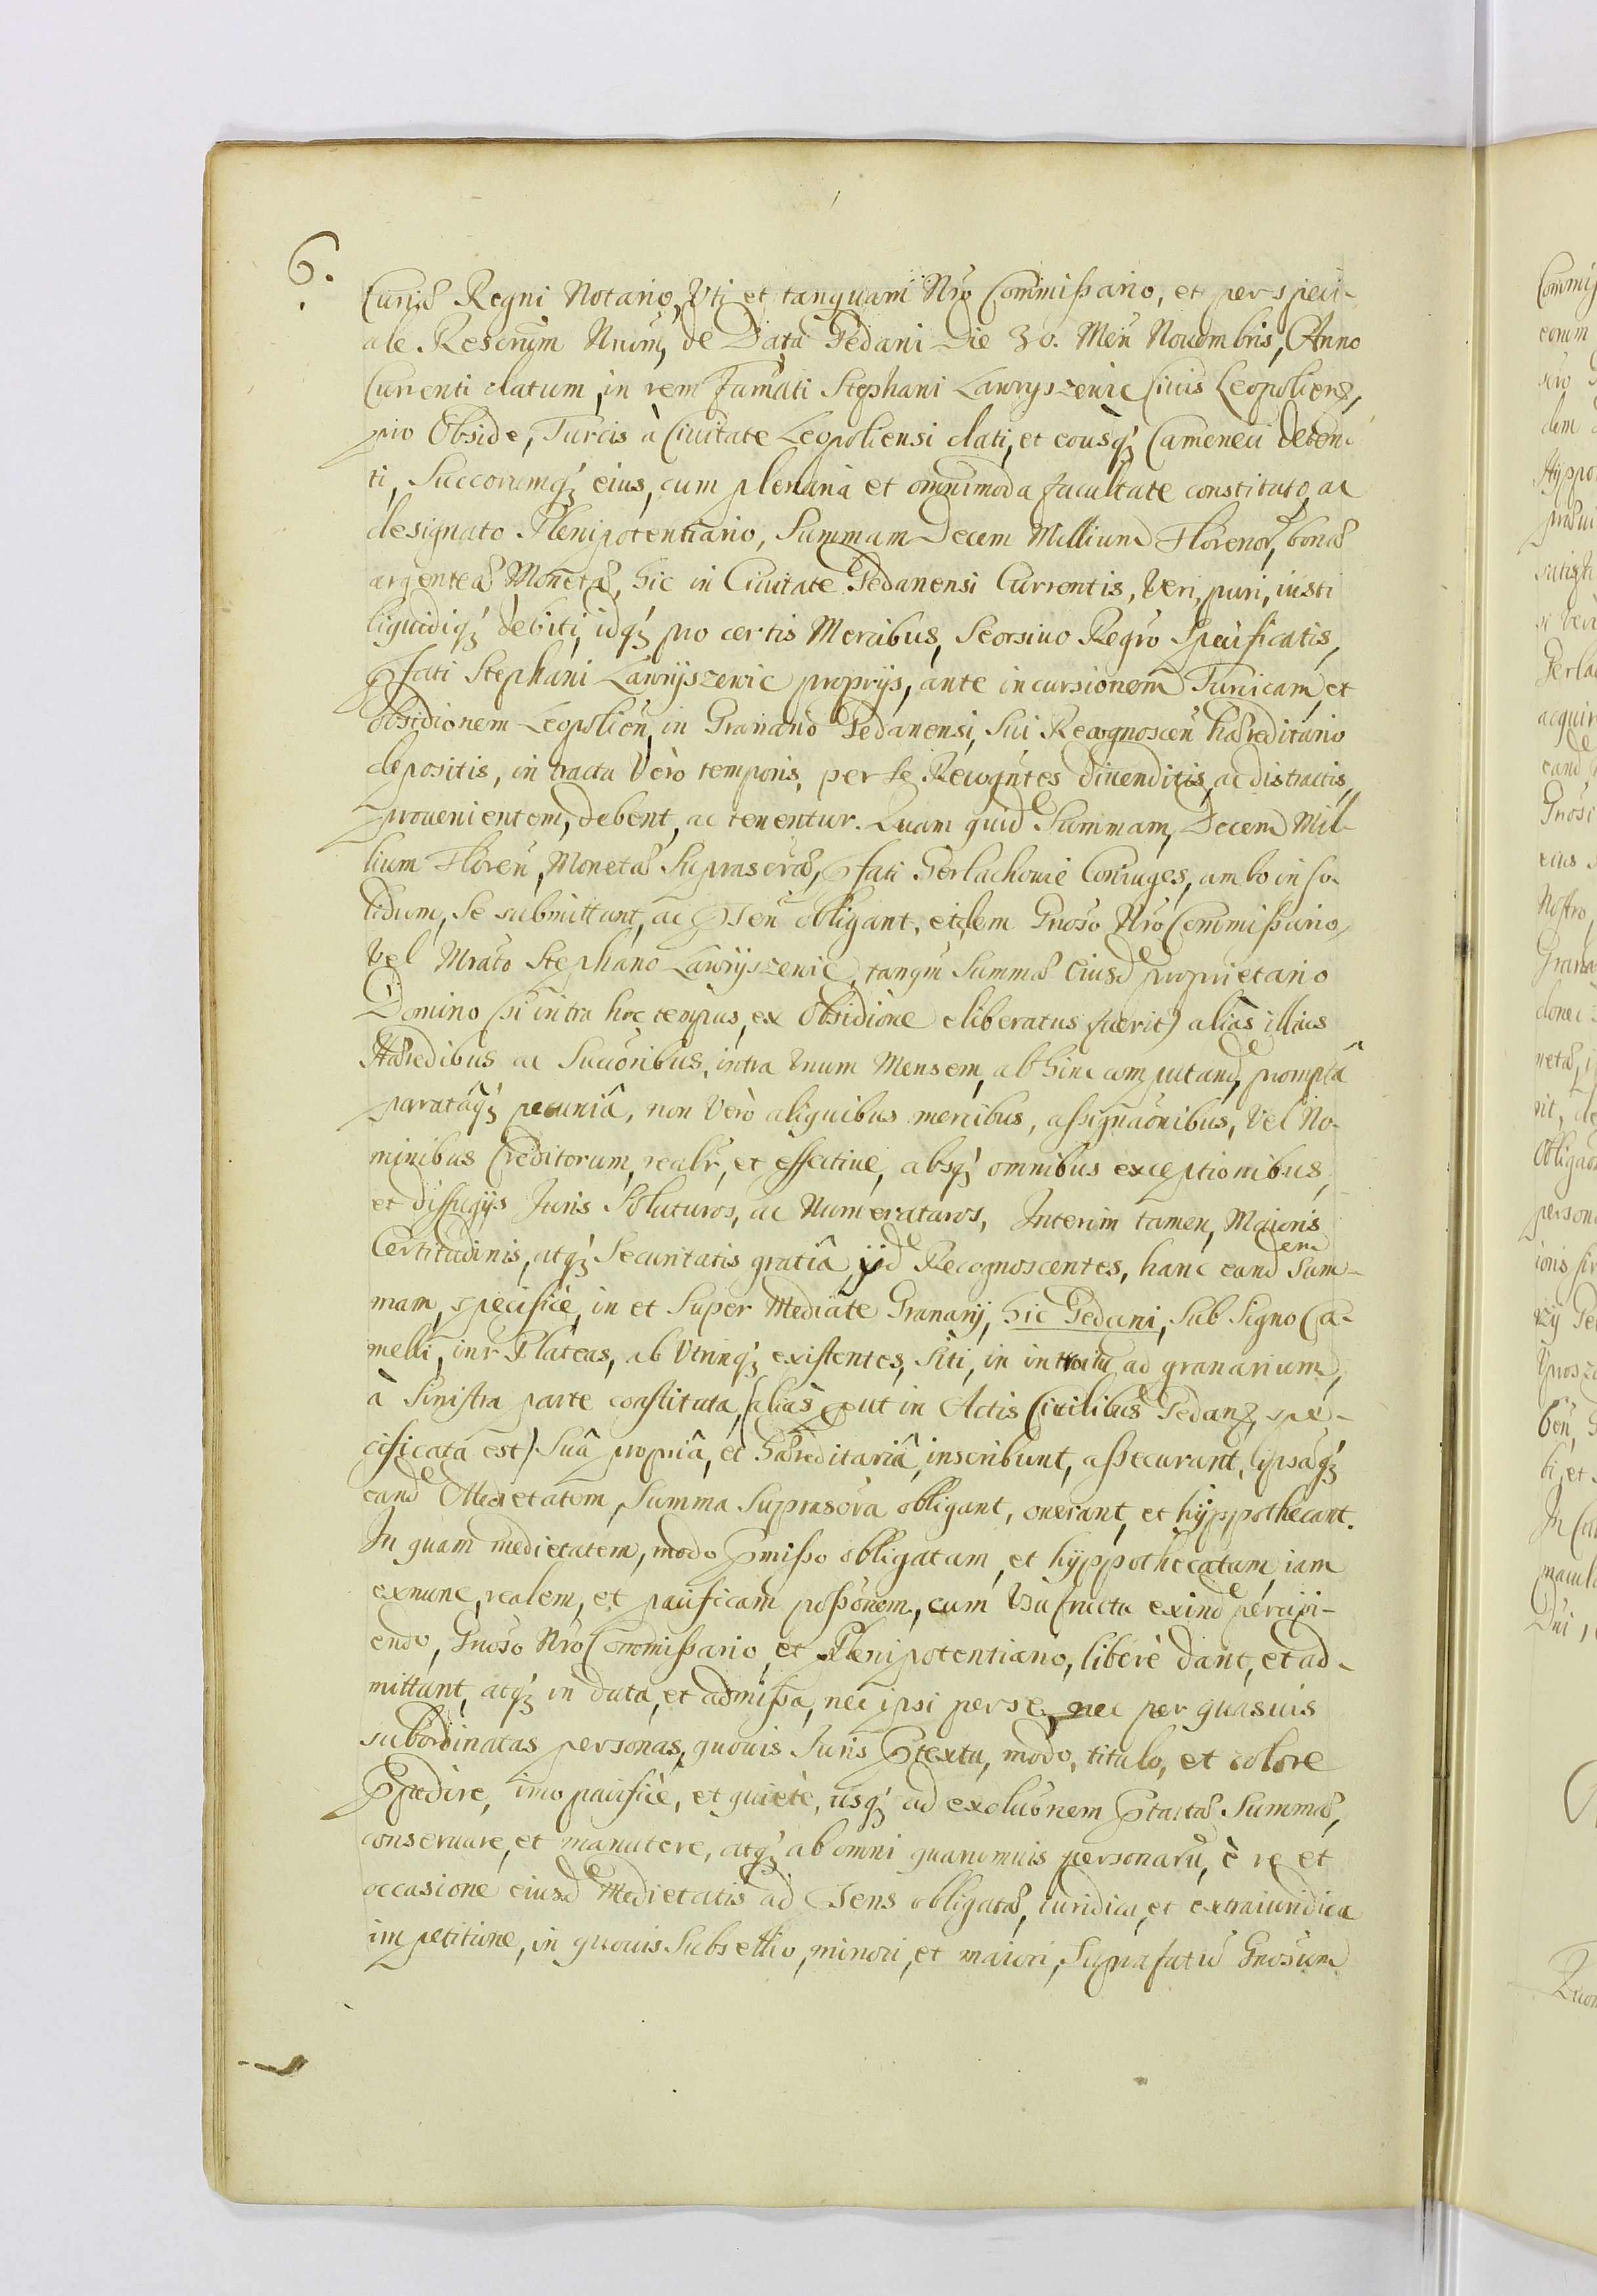 6.
Curiæ Regni Notario, Vti et tanquam Nrõ Commissario, et per speci-
ale Rescrptm Nrum, de Data Gedani Die 30. Men Nouembris, Anno
Currenti datum, in rem Famati Stephani Lawryszewic Ciuis Leopoliens,
pro Obside, Turcis à Ciuitate Leopoliensi dati, et eousq; Cameneci deten-
ti, Succorumq; eius, cum plenaria et omnimoda facultate constituto, ac
designato Plenipotentiario, Summam Decem Millium Florenor, bonæ
argenteæ Monetæ, hic in Ciuitate Gedanensi Currentis, Veri, puri, iusti
liquidiq; debiti, idq; pro certis Mercibus, Seorsiuo Regro Specificatis,
pfati Stephani Lawryszewic proprijs, ante incursionem Turcicam, et
obsidionem Leopolien, in Granario Gedanensi, Sui Recognoscen hæreditario
depositis, in tractu Verò temporis, per se Recogntes diuenditis, ac distractis,
prouenientem, debent, ac tenentur. Quam quid Summam, Decem Mil-
lium Floren, Monetæ Suprascræ, pfati Gerlachowie Coniuges, ambo in so-
lidum, se submittant, ac psen obligant, eidem Gnoso Nrõ Commissario,
Vel Mrato Stephano Lawryszewic, tanqm Summæ Eiusd proprietario
Domino (si intra hoc tempus, ex Obsidione eliberatus fuerit) aliàs illius
Hæredibus ac Succoribus, intra Vnum Mensem, abhinc computand, promptâ
paratâq; pecuniâ, non Verò aliquibus mercibus, assignaonibus, Vel No-
minibus Creditorum, realr, et effectiue, absq; omnibus exceptionibus,
et diffugijs Juris Soluturos, ac Numeraturos, Interim tamen, Maioris
Certitudinis, atq; Securitatis gratiâ, ijd Recognoscentes, hanc eandem Sum-
mam, specifice, in et Super Mediate Granarij, hic Gedani, Sub Signo Ca-
melli, intr Plateas, ab Vtrinq; existentes, Siti, in introitu ad granarium,
à Sinistra parte constituta, (aliàs put in Actis Ciuilibus Gedanz, spe-
cificata est) Suâ propriâ, et hæreditariâ, inscribunt, assecurant, ipsaq;
eand Medietatem, Summa Suprascra obligant, onerant, et hÿppothecant.
In quam medietatem, modo pmisso obligatam, et hÿppothecatam, iam
exnunc, realem, et pacificam possonem, cum Vsufructu exind percipi-
endo, Gnoso Nrõ Commissario, et Plenipotentiario, liberè dant, et ad-
mittunt, atq; in data, et admissa, nec ipsi per se, nec per quasuis
subordinatas personas, quouis Juris ptextu, modo, titulo, et colore
ppedire, imo pacificè, et quietè, usq; ad exoluonem ptactæ Summæ,
conseruare, et manutere, atq; ab omni quarumuis personarũ, è re et
occasione eiusd Medietatis ad psens obligatæ, iuridica, et extraiuridica
impetitione, in quouis Subsellio, minori, et maiori, Suprafatũ Gnosum